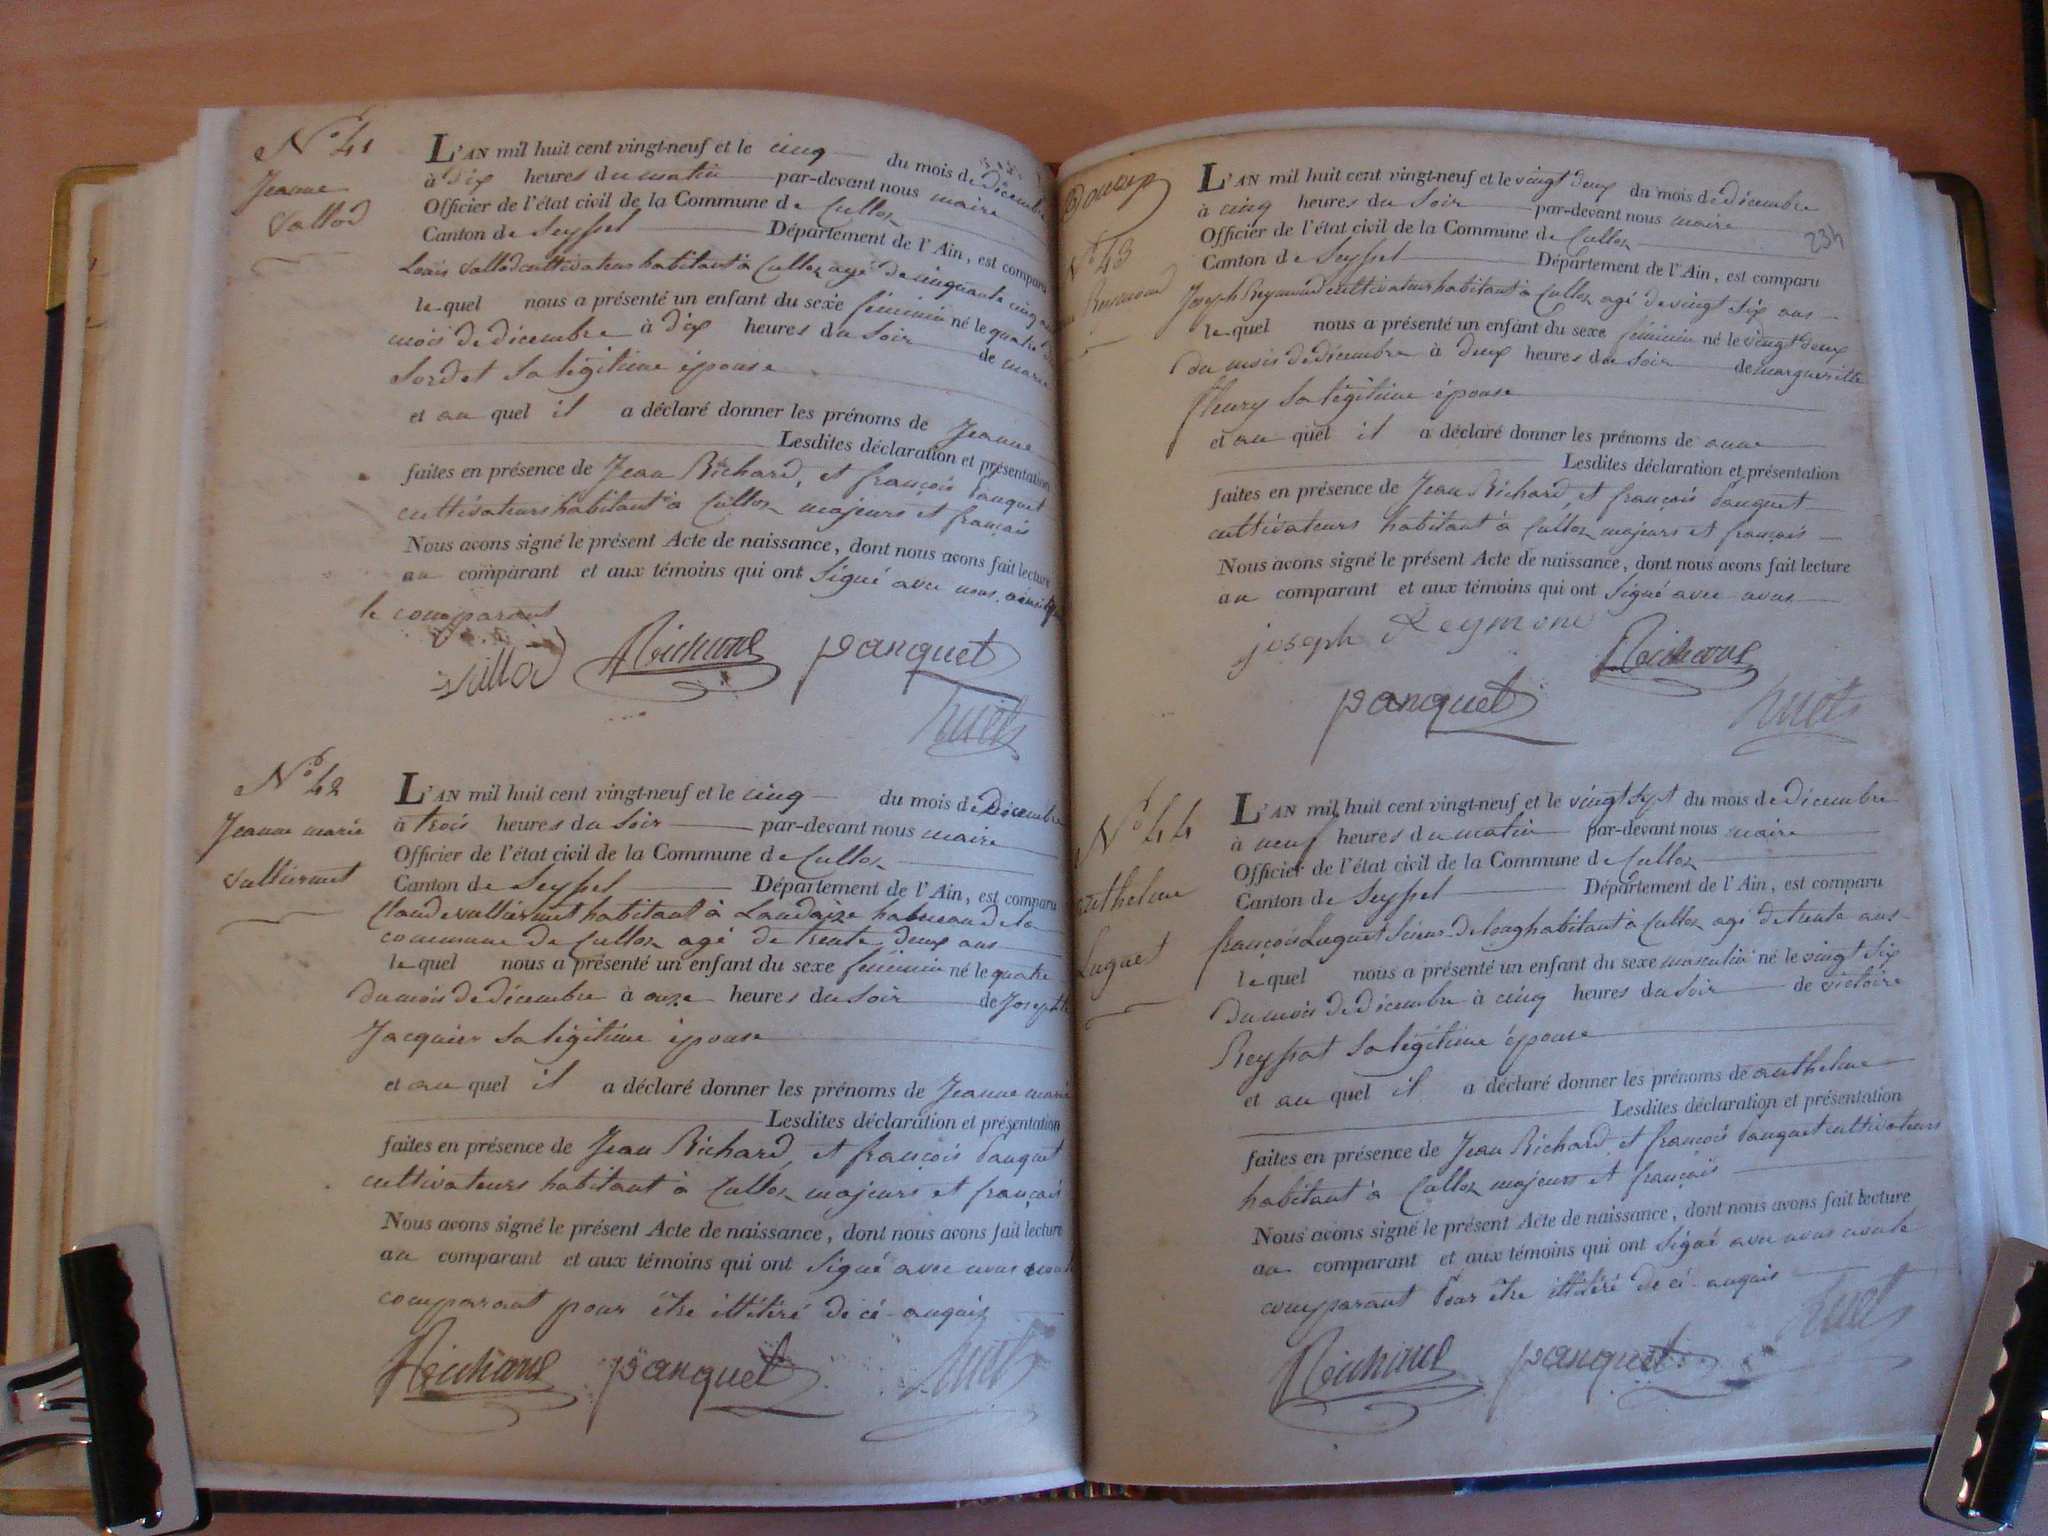 N° 41
Jeanne
Vallod
L'AN mil huit cent vingt-neuf et le cinq du mois de décembre
à dix heures du matin par-devant nous maire
Officier de l'état civil de la Commune de Culloz
Canton de Seyssel Département de l'Ain, est comparu
Louis Vallod cultivateur habitant à Culloz agé de cinquante cinq ans
lequel nous a présenté un enfant du sexe féminin né le quatre du
mois de décembre à dix heures du soir de marie
Sordet sa légitime épouse
et au quel il a déclaré donner les prénoms de Jeanne
Lesdites déclaration et présentation
faites en présence de Jean Richard, et françois panquet
cultivateurs habitant à Culloz majeurs et français
Nous avons signé le présent Acte de naissance, dont nous avons fait lecture
au comparant et aux témoins qui ont signé avec nous ainsi que
le comparant
vallod Richard panquet
huet
N° 42
Jeanne marie
vulliermet
L'AN mil huit cent vingt-neuf et le cinq du mois de Décembre
à trois heures du soir par-devant nous maire
Officier de l'état civil de la Commune de Culloz
Canton de Seyssel Département de l'Ain, est comparu
Claude vulliermet habitant à Landaize hameau de la
commune de Culloz agé de trente deux ans
lequel nous a présenté un enfant du sexe féminin né le quatre
du mois de décembre à onze heures du soir de Josephte
Jacquier sa légitime épouse
et au quel il a déclaré donner les prénoms de Jeanne marie
Lesdites déclaration et présentation
faites en présence de Jean Richard, et françois panquet
cultivateurs habitant à Culloz majeurs et français
Nous avons signé le présent Acte de naissance, dont nous avons fait lecture
au comparant et aux témoins qui ont signé avec nous non le
comparant pour être illitéré de ce enquis
Richard panquet huet
23
N° 43
Reymond
L'AN mil huit cent vingt-neuf et le vingt deux du mois de décembre
à cinq heures du soir par-devant nous maire
Officier de l'état civil de la Commune de Culloz
Canton de Seyssel Département de l'Ain, est comparu
Joseph Reymond cultivateur habitant à Culloz agé de vingt six ans
lequel nous a présenté un enfant du sexe féminin né le vingt deux
du mois de décembre à deux heures du soir de margueritte
fleury sa légitime épouse
et au quel il a déclaré donner les prénoms de anne
Lesdites déclaration et présentation
faites en présence de Jean Richard, et françois panquet
cultivateurs habitant à Culloz majeurs et français
Nous avons signé le présent Acte de naissance, dont nous avons fait lecture
au comparant et aux témoins qui ont signé avec nous
joseph Reymond Richard
panquet huet
N° 44
anthelme
Luguet
L'AN mil huit cent vingt-neuf et le vingt sept du mois de décembre
à neuf heures du matin par-devant nous maire
Officier de l'état civil de la Commune de Culloz
Canton de Seyssel Département de l'Ain, est comparu
françois Luguet scieur de long habitant à Culloz agé de trente ans
lequel nous a présenté un enfant du sexe masculin né le vingt six
du mois de décembre à cinq heures du soir de victoire
Reyssat sa légitime épouse
et au quel il a déclaré donner les prénoms de anthelme
Lesdites déclaration et présentation
faites en présence de Jean Richard, et françois panquet cultivateurs
habitant à Culloz majeurs et français
Nous avons signé le présent Acte de naissance, dont nous avons fait lecture
au comparant et aux témoins qui ont signé avec nous non le
comparant pour être illitéré de ce enquis
huet
Richard panquet